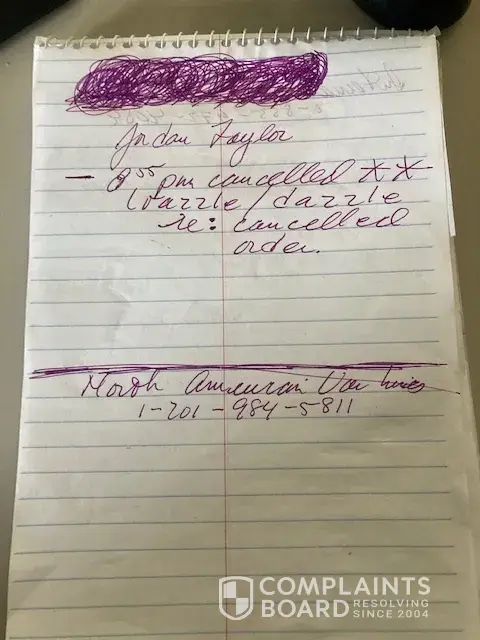 Jordan Taylor
— 8:55 pm cancelled **
razzle/dazzle
re: cancelled
order.
North American Van Lines
1-201-984-5811
COMPLAINTS
BOARD RESOLVING
SINCE 2004